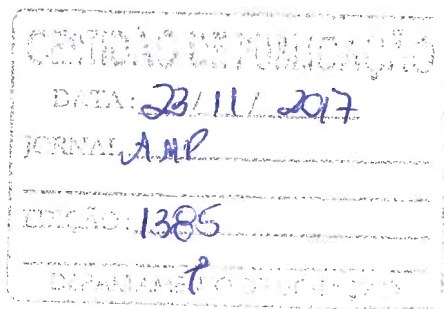 CERTIDÃO DE PUBLICAÇÃO
DATA: 23/ 11/ 2017
JORNAL AMP
EDIÇÃO: 1385